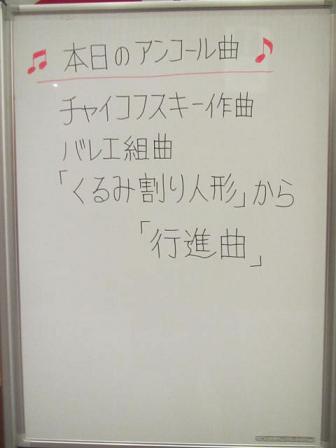 ♫ 本日のアンコール曲 ♪
チャイコフスキー作曲
バレエ組曲
「くるみ割り人形」から
「行進曲」